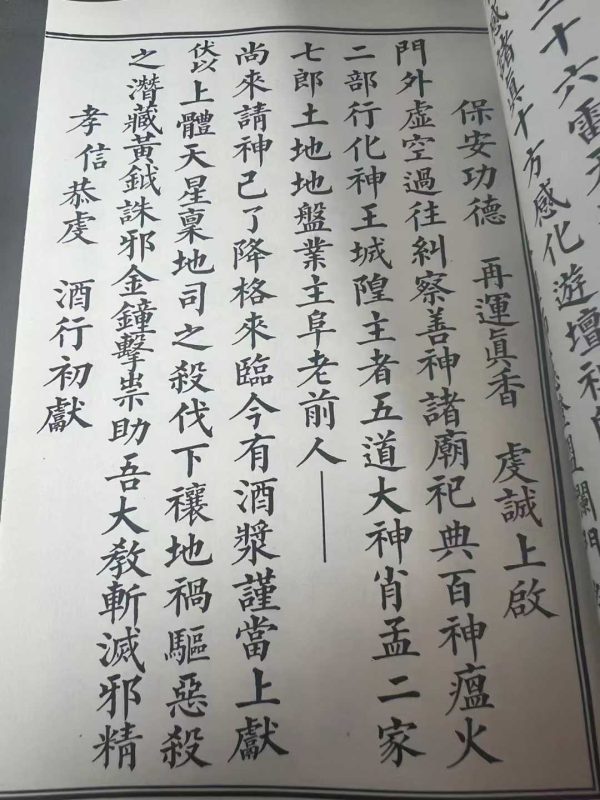 二十六雷天
感諸真十方感化遊壇神
保安功德　再運眞香　虔誠上啟
門外虛空過往糾察善神諸廟祀典百神瘟火
二部行化神王城隍主者五道大神肖孟二家
七郎土地地盤業主阜老前人——
尚來請神已了降格來臨今有酒漿謹當上獻
伏以上體天星稟地司之殺伐下禳地禍驅惡殺
之潛藏黃鉞誅邪金鐘擊祟助吾大教斬滅邪精
孝信恭虔　酒行初獻